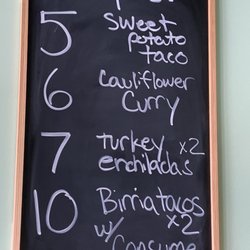 5 Sweet
potato
taco
6 Cauliflower
Curry
7 turkey x2
enchiladas
10 Birria tacos
w/ x2
Consume